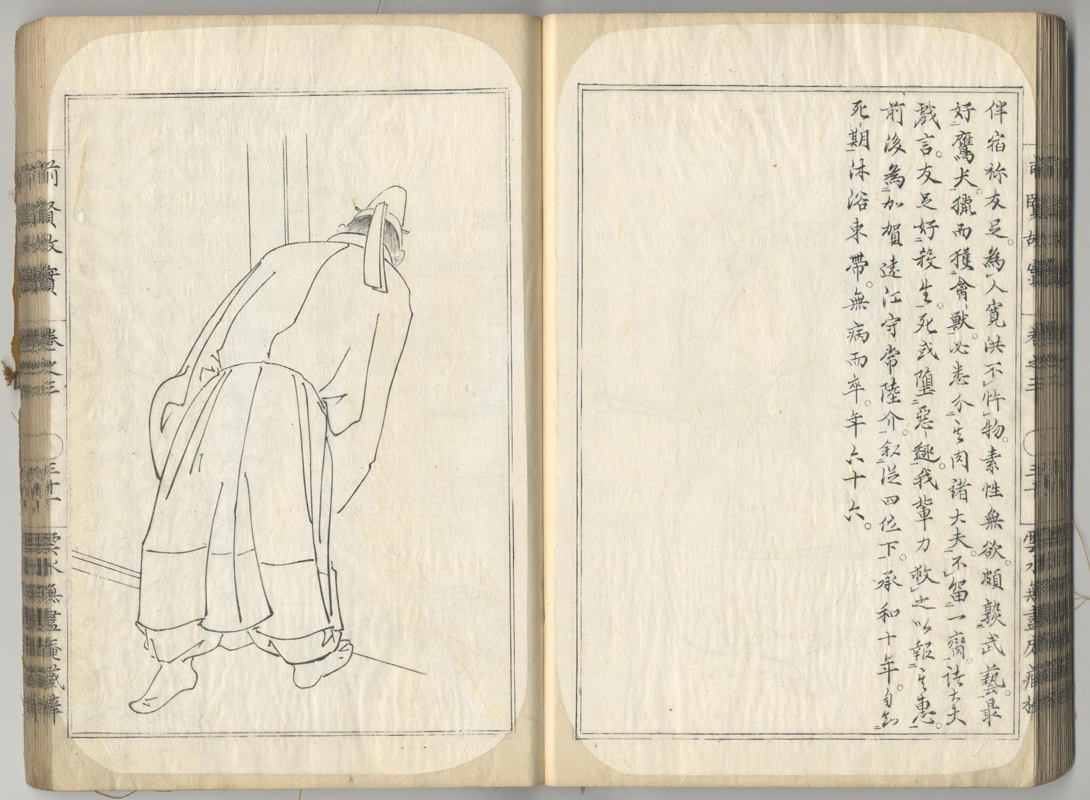 伴宿祢友足。為人寬洪不忤物。素性無欲。頗熟武藝。最
好鷹犬。獵而獲禽獸。必悉分其肉諸大夫。不留一臠。諸大夫
戲言。友足好殺生。死或墮惡趣。我輩力救之以報其惠。
前後為加賀遠江守常陸介。叙從四位下。承和十年。自知
死期沐浴束帶。無病而卒。年六十六。
前賢故實
卷之三
雲水無盡庵藏梓
前賢故實
卷之三
雲水無盡庵藏梓